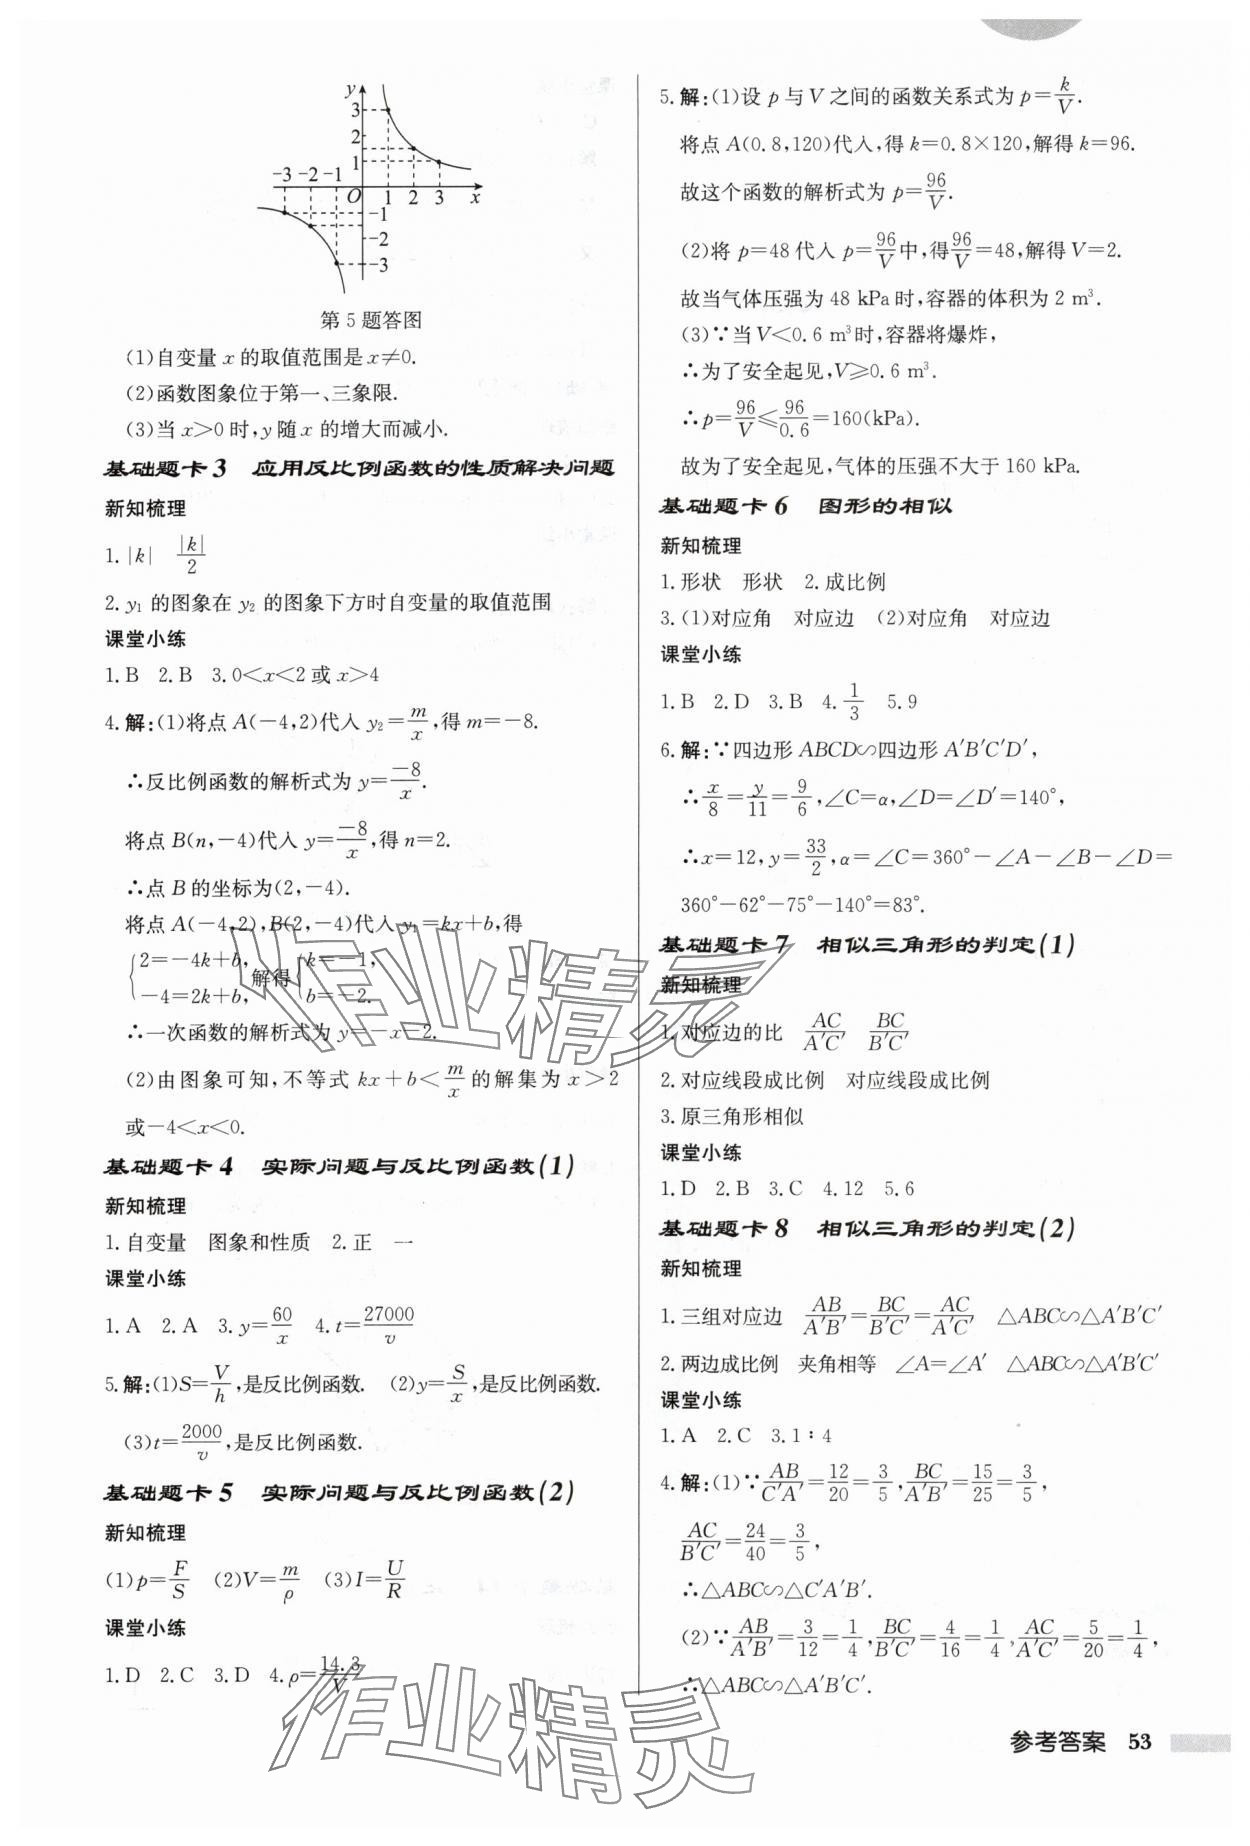 y
3
2
1
-3 -2 -1
O 1 2 3 x
-1
-2
-3
第 5 题答图
(1)自变量 x 的取值范围是 x≠0.
(2)函数图象位于第一、三象限.
(3)当 x>0 时,y 随 x 的增大而减小.
基础题卡 3 应用反比例函数的性质解决问题
新知梳理
1. |k| |k|/2
2. y₁ 的图象在 y₂ 的图象下方时自变量的取值范围
课堂小练
1. B 2. B 3. 0<x<2 或 x>4
4. 解:(1)将点 A(-4,2)代入 y₂=m/x,得 m=-8.
∴反比例函数的解析式为 y=-8/x.
将点 B(n,-4)代入 y=-8/x,得 n=2.
∴点 B 的坐标为(2,-4).
将点 A(-4,2),B(2,-4)代入 y₁=kx+b,得
{2=-4k+b, 解得 {k=-1,
-4=2k+b, b=-2.
∴一次函数的解析式为 y=-x-2.
(2)由图象可知,不等式 kx+b<m/x 的解集为 x>2
或-4<x<0.
基础题卡 4 实际问题与反比例函数(1)
新知梳理
1. 自变量 图象和性质 2. 正 一
课堂小练
1. A 2. A 3. y=60/x 4. t=27000/v
5. 解:(1)S=V/h,是反比例函数. (2)y=S/x,是反比例函数.
(3)t=2000/v,是反比例函数.
基础题卡 5 实际问题与反比例函数(2)
新知梳理
(1)p=F/S (2)V=m/ρ (3)I=U/R
课堂小练
1. D 2. C 3. D 4. ρ=14.3/V
5. 解:(1)设 p 与 V 之间的函数关系式为 p=k/V.
将点 A(0.8,120)代入,得 k=0.8×120,解得 k=96.
故这个函数的解析式为 p=96/V.
(2)将 p=48 代入 p=96/V中,得96/V=48,解得 V=2.
故当气体压强为 48 kPa 时,容器的体积为 2 m³.
(3)∵当 V<0.6 m³ 时,容器将爆炸,
∴为了安全起见,V≥0.6 m³.
∴p=96/V≤96/0.6=160(kPa).
故为了安全起见,气体的压强不大于 160 kPa.
基础题卡 6 图形的相似
新知梳理
1. 形状 形状 2. 成比例
3. (1)对应角 对应边 (2)对应角 对应边
课堂小练
1. B 2. D 3. B 4. 1/3 5. 9
6. 解:∵四边形 ABCD∽四边形 A′B′C′D′,
∴x/8=y/11=9/6,∠C=α,∠D=∠D′=140°,
∴x=12,y=33/2,α=∠C=360°-∠A-∠B-∠D=
360°-62°-75°-140°=83°.
基础题卡 7 相似三角形的判定(1)
新知梳理
1. 对应边的比 AC/A′C′ BC/B′C′
2. 对应线段成比例 对应线段成比例
3. 原三角形相似
课堂小练
1. D 2. B 3. C 4. 12 5. 6
基础题卡 8 相似三角形的判定(2)
新知梳理
1. 三组对应边 AB/A′B′=BC/B′C′=AC/A′C′ △ABC∽△A′B′C′
2. 两边成比例 夹角相等 ∠A=∠A′ △ABC∽△A′B′C′
课堂小练
1. A 2. C 3. 1∶4
4. 解:(1)∵AB/C′A′=12/20=3/5,BC/A′B′=15/25=3/5,
AC/B′C′=24/40=3/5,
∴△ABC∽△C′A′B′.
(2)∵AB/A′B′=3/12=1/4,BC/B′C′=4/16=1/4,AC/A′C′=5/20=1/4,
∴△ABC∽△A′B′C′.
参考答案 53
作业精灵
作业精灵